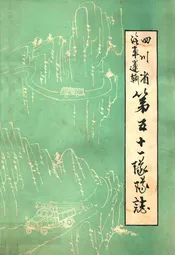 四川省
汽车运输
第五十一队队誌